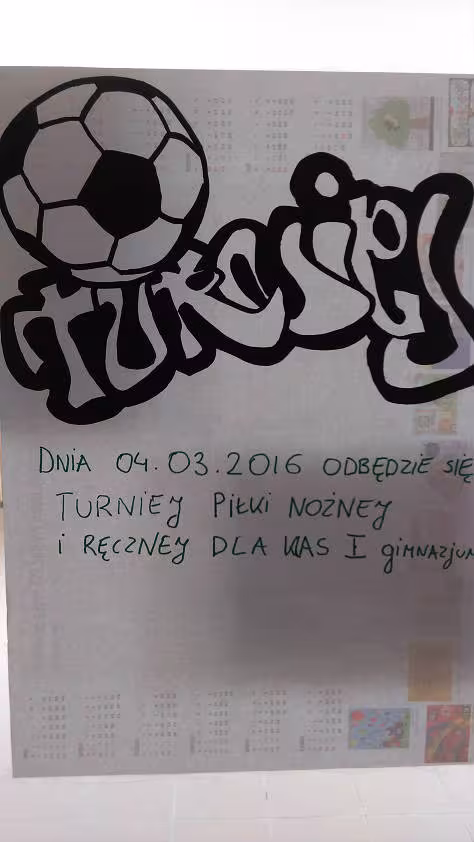 TURNIEJ
DNIA 04.03.2016 ODBĘDZIE SIĘ
TURNIEJ PIŁKI NOŻNEJ
i RĘCZNEJ DLA KLAS I gimnazjum